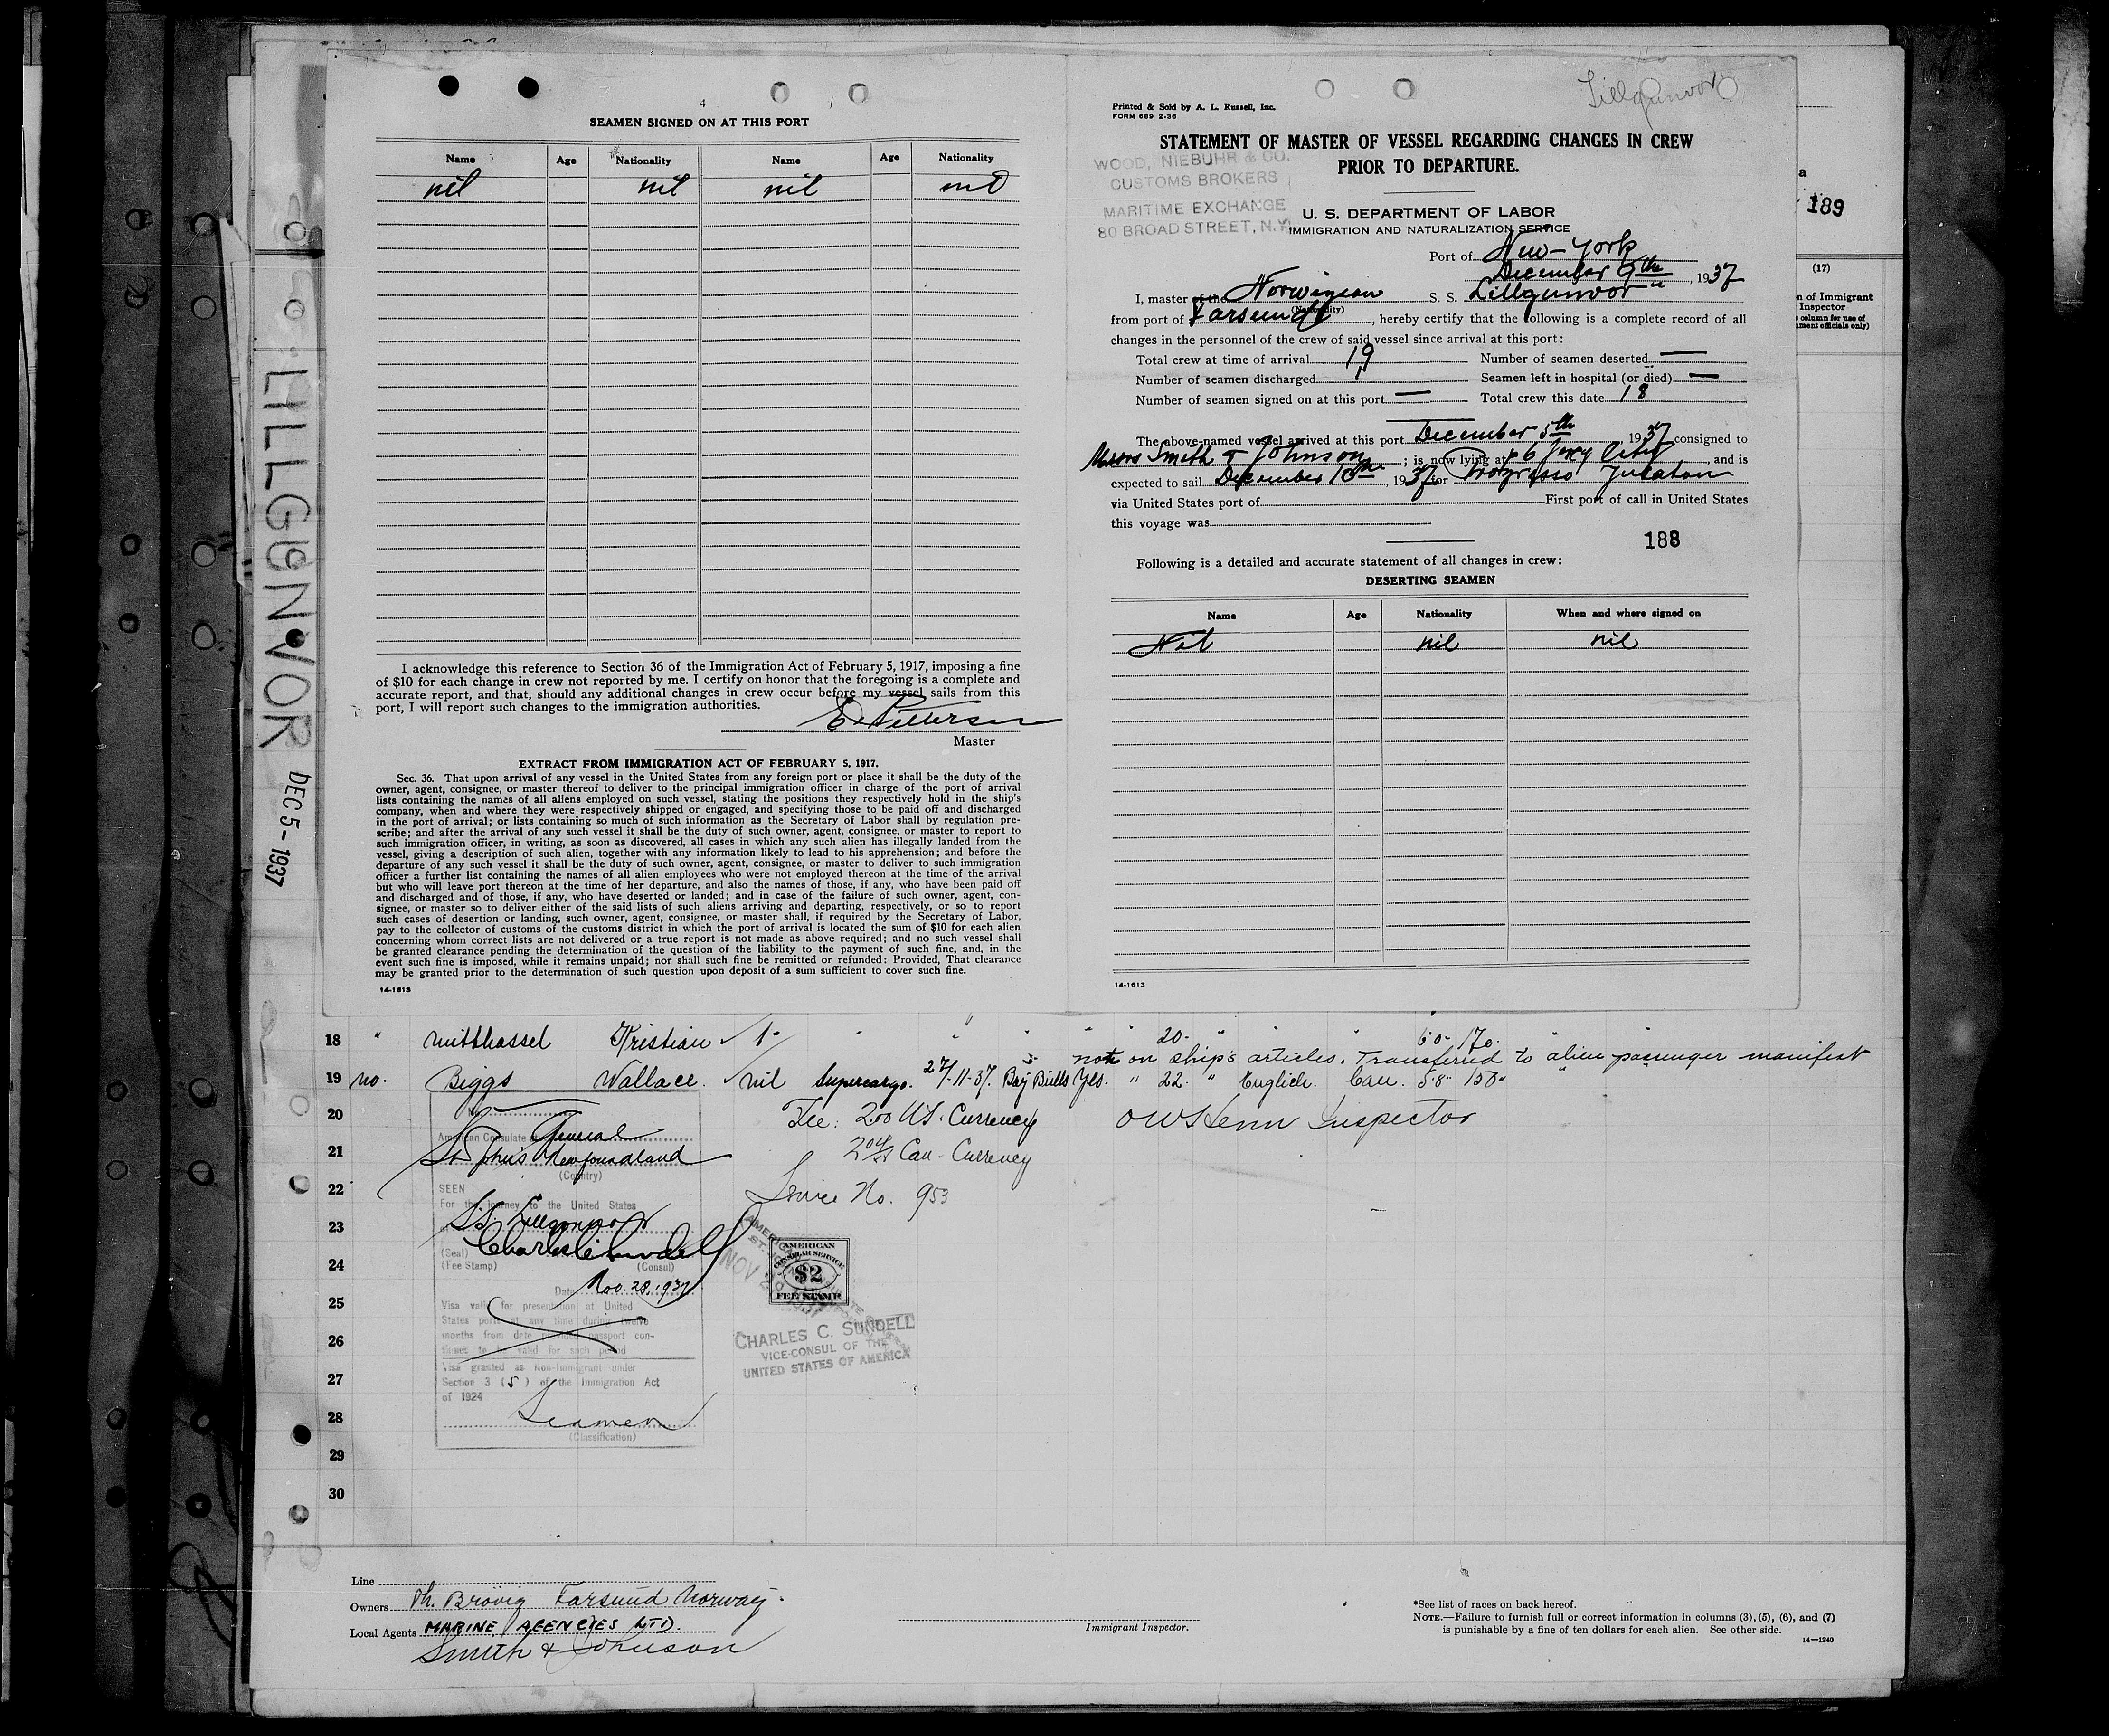 LILLGUNVOR DEC 5 - 1937
4
SEAMEN SIGNED ON AT THIS PORT
Name Age Nationality Name Age Nationality
nil nil nil nil
I acknowledge this reference to Section 36 of the Immigration Act of February 5, 1917, imposing a fine
of $10 for each change in crew not reported by me. I certify on honor that the foregoing is a complete and
accurate report, and that, should any additional changes in crew occur before my vessel sails from this
port, I will report such changes to the immigration authorities.
Master
EXTRACT FROM IMMIGRATION ACT OF FEBRUARY 5, 1917.
Sec. 36. That upon arrival of any vessel in the United States from any foreign port or place it shall be the duty of the
owner, agent, consignee, or master thereof to deliver to the principal immigration officer in charge of the port of arrival
lists containing the names of all aliens employed on such vessel, stating the positions they respectively hold in the ship's
company, when and where they were respectively shipped or engaged, and specifying those to be paid off and discharged
in the port of arrival; or lists containing so much of such information as the Secretary of Labor shall by regulation pre-
scribe; and after the arrival of any such vessel it shall be the duty of such owner, agent, consignee, or master to report to
such immigration officer, in writing, as soon as discovered, all cases in which any such alien has illegally landed from the
vessel, giving a description of such alien, together with any information likely to lead to his apprehension; and before the
departure of any such vessel it shall be the duty of such owner, agent, consignee, or master to deliver to such immigration
officer a further list containing the names of all alien employees who were not employed thereon at the time of the arrival
but who will leave port thereon at the time of her departure, and also the names of those, if any, who have been paid off
and discharged and of those, if any, who have deserted or landed; and in case of the failure of such owner, agent, con-
signee, or master so to deliver either of the said lists of such aliens arriving and departing, respectively, or so to report
such cases of desertion or landing, such owner, agent, consignee, or master shall, if required by the Secretary of Labor,
pay to the collector of customs of the customs district in which the port of arrival is located the sum of $10 for each alien
concerning whom correct lists are not delivered or a true report is not made as above required; and no such vessel shall
be granted clearance pending the determination of the question of the liability to the payment of such fine, and, in the
event such fine is imposed, while it remains unpaid; nor shall such fine be remitted or refunded: Provided, That clearance
may be granted prior to the determination of such question upon deposit of a sum sufficient to cover such fine.
14-1613
Lillgunvor
Printed & Sold by A. L. Russell, Inc.
FORM 689 2-36
STATEMENT OF MASTER OF VESSEL REGARDING CHANGES IN CREW
PRIOR TO DEPARTURE.
WOOD, NIEBUHR & CO.
CUSTOMS BROKERS
MARITIME EXCHANGE
80 BROAD STREET, N.Y.
U. S. DEPARTMENT OF LABOR
IMMIGRATION AND NATURALIZATION SERVICE
Port of New-York
December 9th, 1937
I, master of the Norwegian S. S. Lillgunvor
(Nationality)
from port of Farsund, hereby certify that the following is a complete record of all
changes in the personnel of the crew of said vessel since arrival at this port:
Total crew at time of arrival 19 Number of seamen deserted —
Number of seamen discharged 1 Seamen left in hospital (or died) —
Number of seamen signed on at this port — Total crew this date 18
The above-named vessel arrived at this port December 5th, 1937 consigned to
Messrs Smith & Johnson; is now lying at 6 Jersey City, and is
expected to sail December 10th, 1937 for Progresso Yucatan
via United States port of First port of call in United States
this voyage was
188
Following is a detailed and accurate statement of all changes in crew:
DESERTING SEAMEN
Name Age Nationality When and where signed on
Nil nil nil
14-1613
a
189
(17)
n of Immigrant
Inspector
column for use of
nment officials only)
18 " Kristian 1 " " " " " 20 " " " 6 0 170
not on ship's articles. Transferred to alien passenger manifest
19 no. Biggs Wallace. nil Supercargo. 27/-11-37. Bay Bulls Yes. " 22 " English. Can. 5 8 150
20 Fee: 2.00 U.S. Currency Inspector
American Consulate General
21 St Johns Newfoundland Can. Currency
(Country)
22 SEEN Service No. 953
For the journey to the United States
23 S.S. Lillgunvor
(Seal) Charles C. Sundell
24 (Fee Stamp) (Consul)
AMERICAN CONSULAR SERVICE $2 FEE STAMP
Date Nov. 28, 1937
25 Visa valid for presentation at United
States ports at any time during twelve
26 months from date provided passport con-
tinues to be valid for such period
CHARLES C. SUNDELL
VICE-CONSUL OF THE
UNITED STATES OF AMERICA
Visa granted as Non-Immigrant under
27 Section 3 (5) of the Immigration Act
of 1924
28 Seamen
(Classification)
29
30
Line
Owners Th. Brövig Farsund Norway.
Local Agents MARINE AGENCIES LTD.
Smith & Johnson
Immigrant Inspector.
*See list of races on back hereof.
NOTE.—Failure to furnish full or correct information in columns (3), (5), (6), and (7)
is punishable by a fine of ten dollars for each alien. See other side.
14—1240